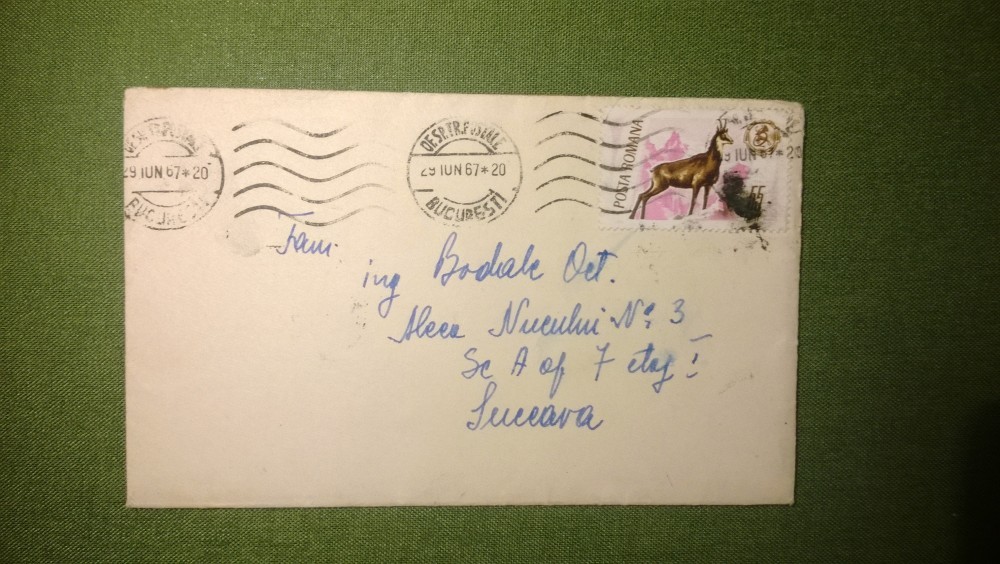 29 IUN 67*20
BUCUREȘTI
29 IUN 67*20
BUCUREȘTI
POSTA ROMANA
55
IUN 67*20
Fam.
ing Bodale Oct.
Aleea Nucului Nº 3
Sc A ap 7 etaj I
Suceava